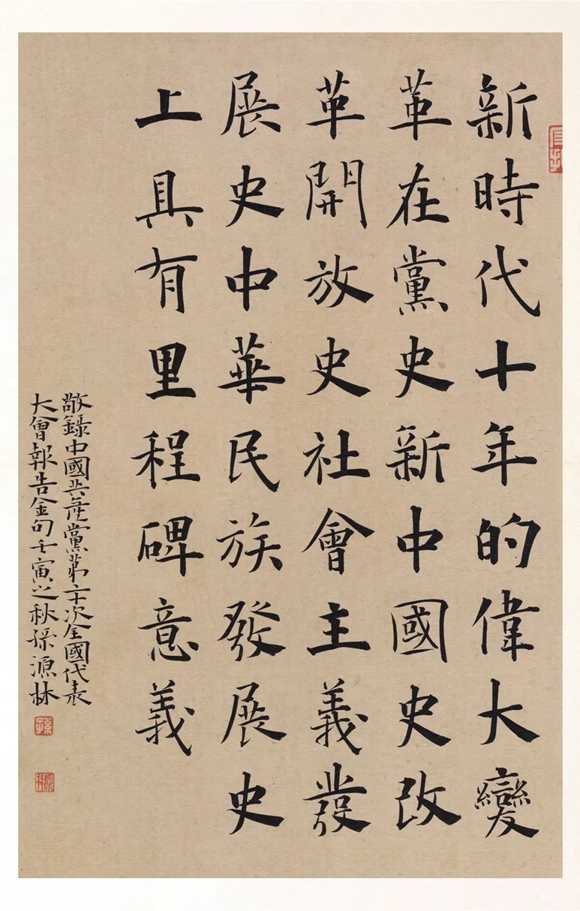 新時代十年的偉大變
革在黨史新中國史改
革開放史社會主義發
展史中華民族發展史
上具有里程碑意義
敬錄中國共產黨第二十次全國代表
大會報告金句壬寅之秋孫源林